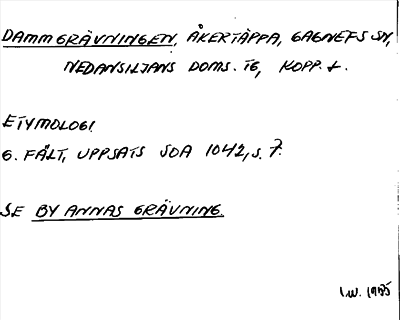 DAMMGRÄVNINGEN, ÅKERTÄPPA, GAGNEFS SN,
NEDANSILJANS DOMS. TG, KOPP. L.
ETYMOLOGI
G. FÄLT, UPPSATS SOA 1042, S. 7.
SE BY ANNAS GRÄVNING.
I.W. 1985